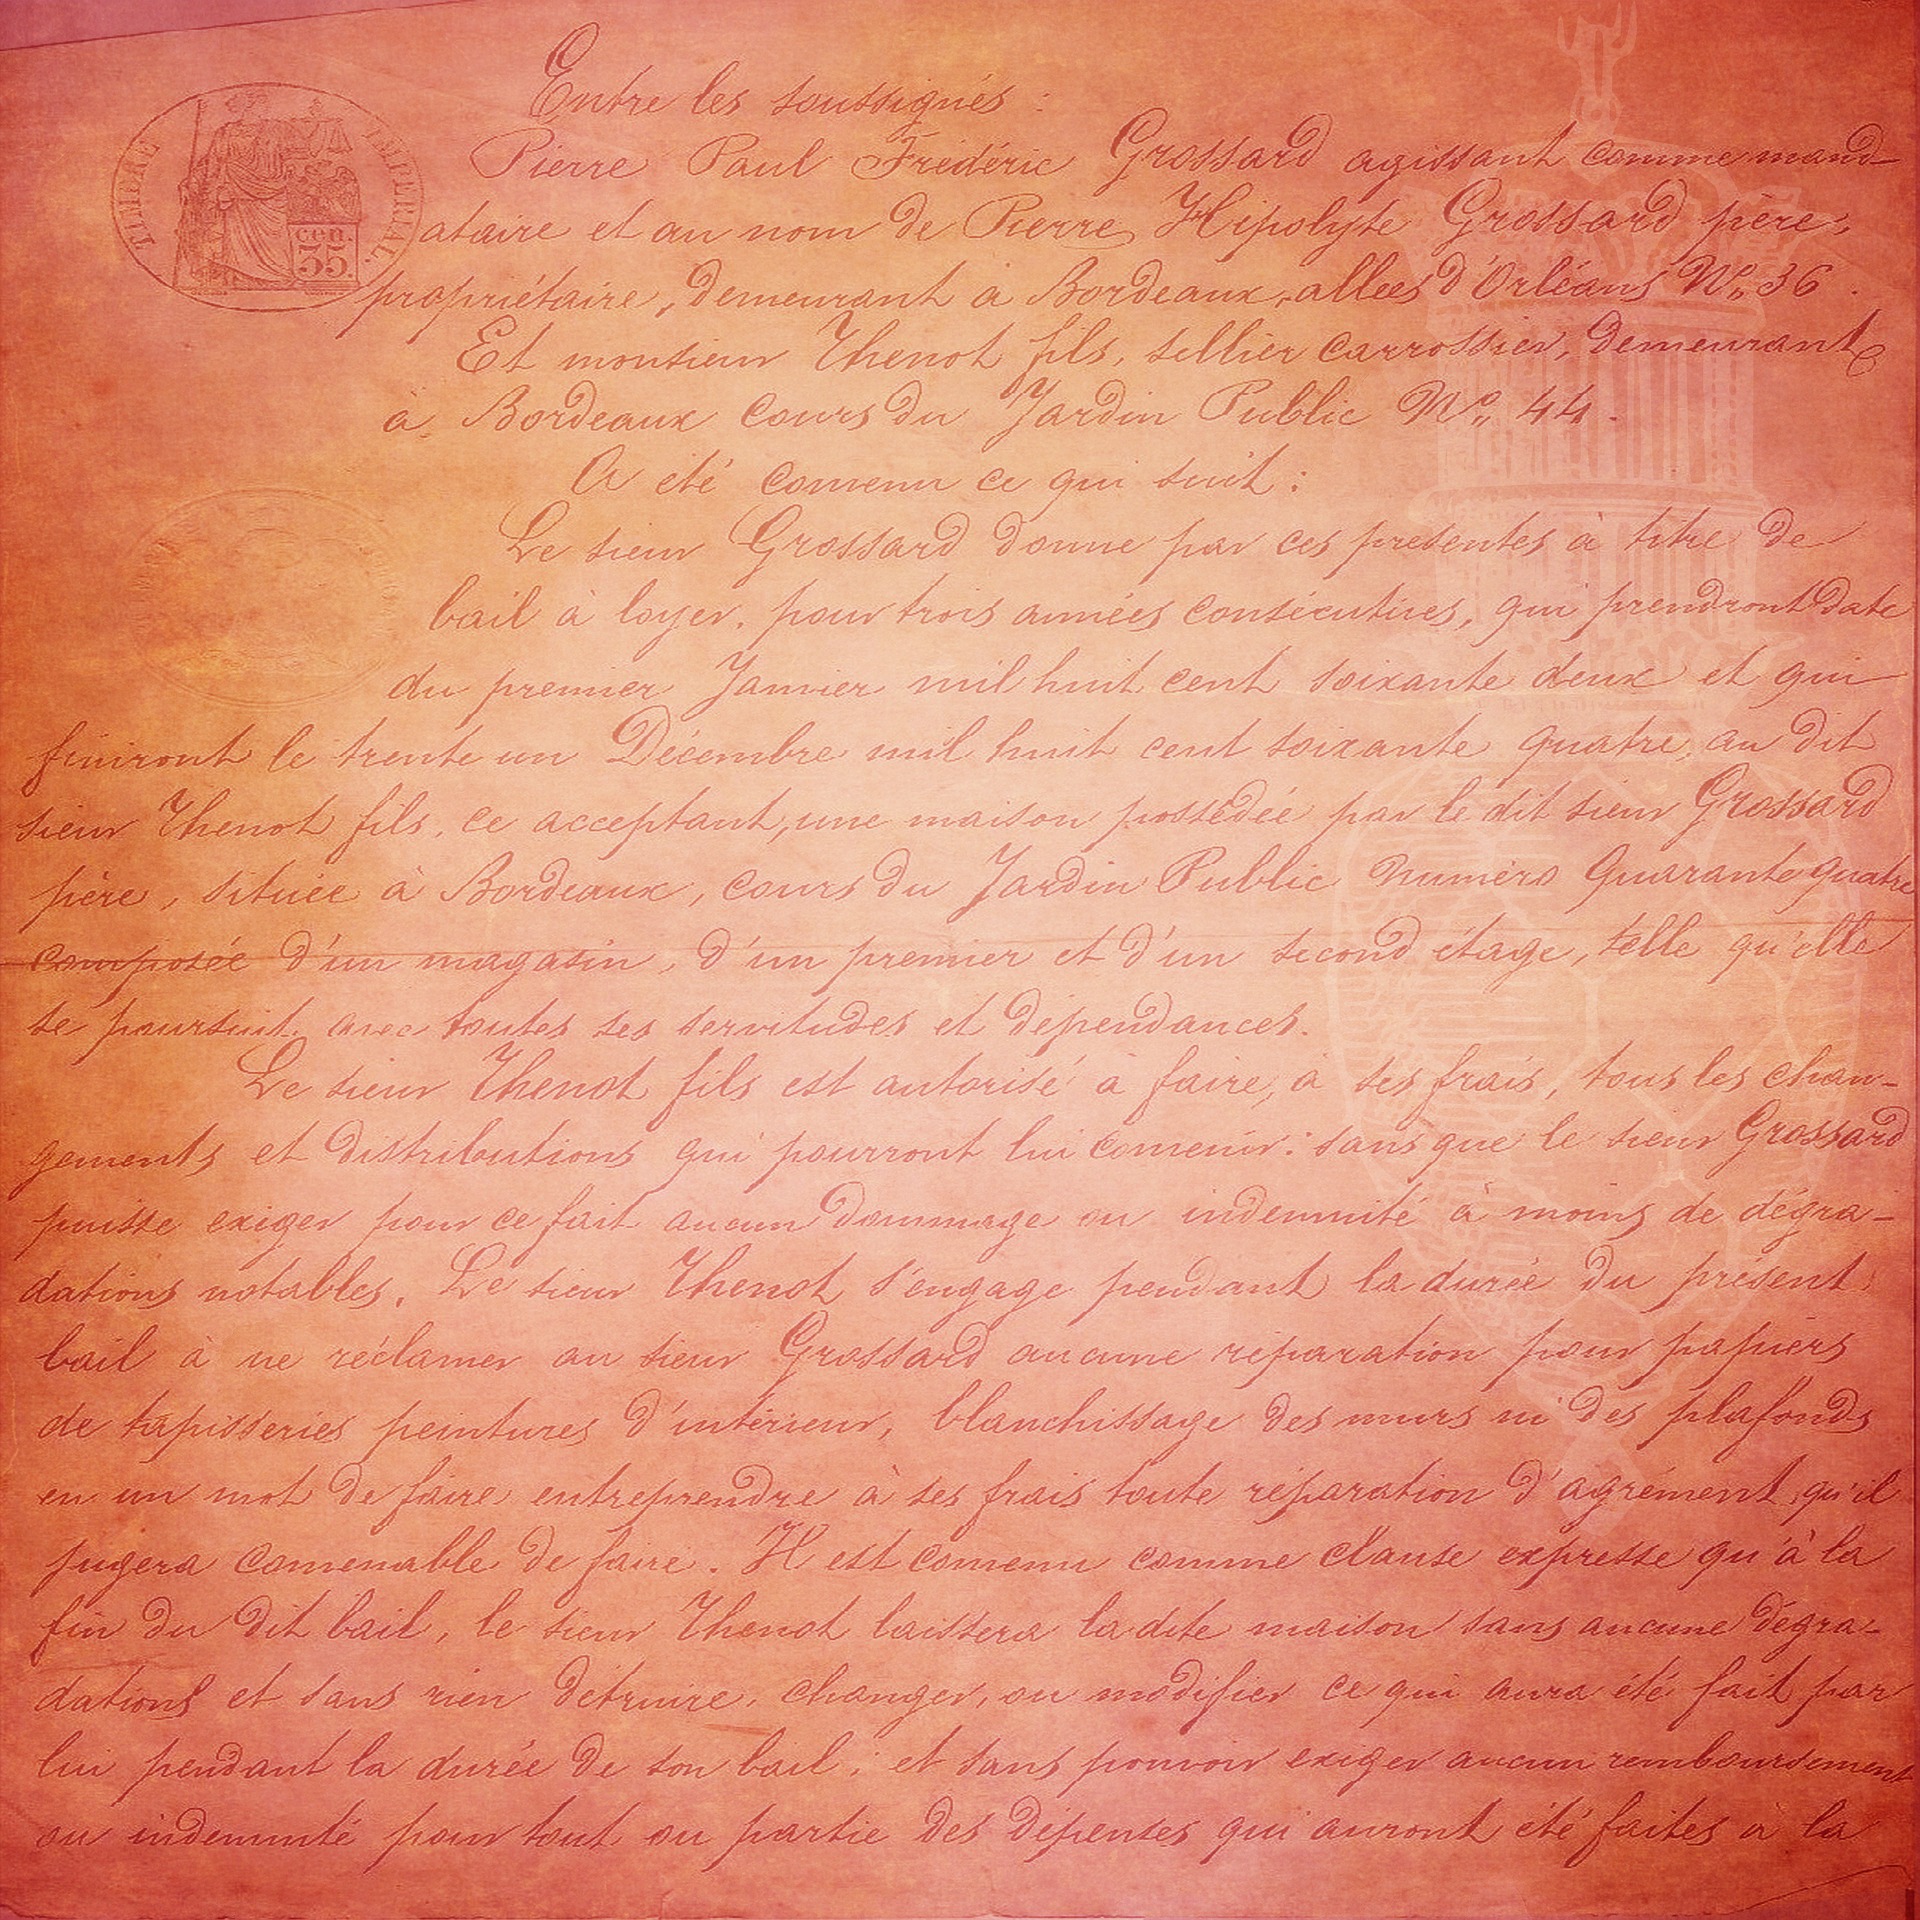 Entre les soussignés :
Pierre Paul Frédéric Grossard agissant comme mand-
TIMBRE IMPERIAL
cen. 35.
ataire et au nom de Pierre Hipolyte Grossard père,
propriétaire, demeurant à Bordeaux, allées d'Orléans No. 36.
Et monsieur Thenot fils, sellier carrossier, demeurant
à Bordeaux cours du Jardin Public No. 44.
A été convenu ce qui suit :
Le sieur Grossard donne par ces présentes à titre de
bail à loyer, pour trois années consécutives, qui prendront date
du premier Janvier mil huit cent soixante deux et qui
finiront le trente un Décembre mil huit cent soixante quatre, au dit
sieur Thenot fils, ce acceptant, une maison possédée par le dit sieur Grossard
père, située à Bordeaux, cours du Jardin Public numéro Quarante quatre
composée d'un magasin, d'un premier et d'un second étage, telle qu'elle
se poursuit, avec toutes ses servitudes et dépendances.
Le sieur Thenot fils est autorisé à faire, à ses frais, tous les chan-
gements et distributions qui pourront lui convenir : sans que le sieur Grossard
puisse exiger pour ce fait aucun dommage ou indemnité à moins de dégra-
dations notables. Le sieur Thenot s'engage pendant la durée du présent
bail à ne réclamer au sieur Grossard aucune réparation pour papiers
de tapisseries peintures d'intérieur, blanchissage des murs ni des plafonds
en un mot de faire entreprendre à ses frais toute réparation d'agrément qu'il
jugera convenable de faire. Il est convenu comme clause expresse qu'à la
fin du dit bail, le sieur Thenot laissera la dite maison sans aucune dégra-
dations et sans rien détruire, changer, ou modifier ce qui aura été fait par
lui pendant la durée de son bail ; et sans pouvoir exiger aucun remboursement
ou indemnité pour tout ou partie des dépenses qui auront été faites à la